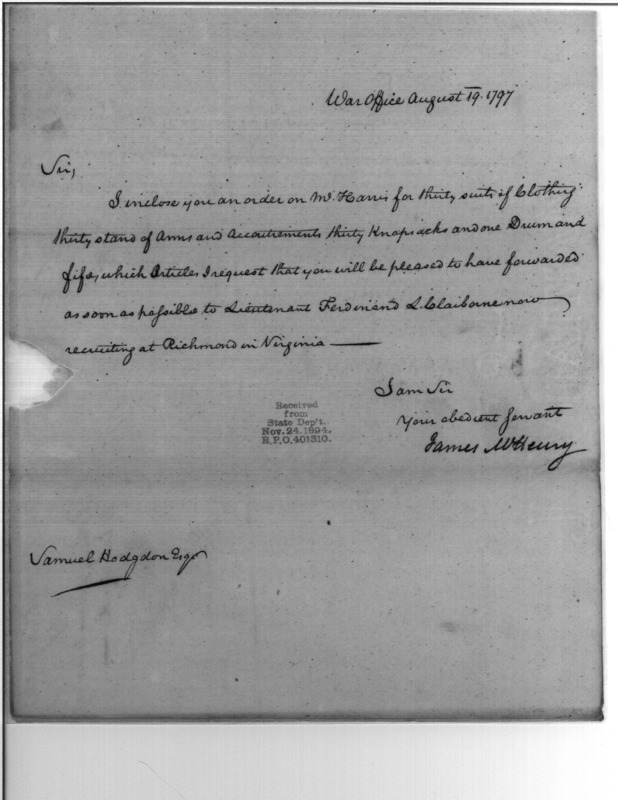 War Office August 19. 1797
Sir,
I inclose you an order on Mr. Harris for thirty suits of Clothing
thirty stand of Arms and Accoutrements thirty Knapsacks and one Drum and
fife, which Articles I request that you will be pleased to have forwarded
as soon as possible to Lieutenant Ferdinand L. Claiborne now
recruiting at Richmond in Virginia
I am Sir
Your obedient servant
James McHenry
Received
from
State Dep't.
Nov. 24. 1894.
R.P.O. 401310.
Samuel Hodgdon Esqr